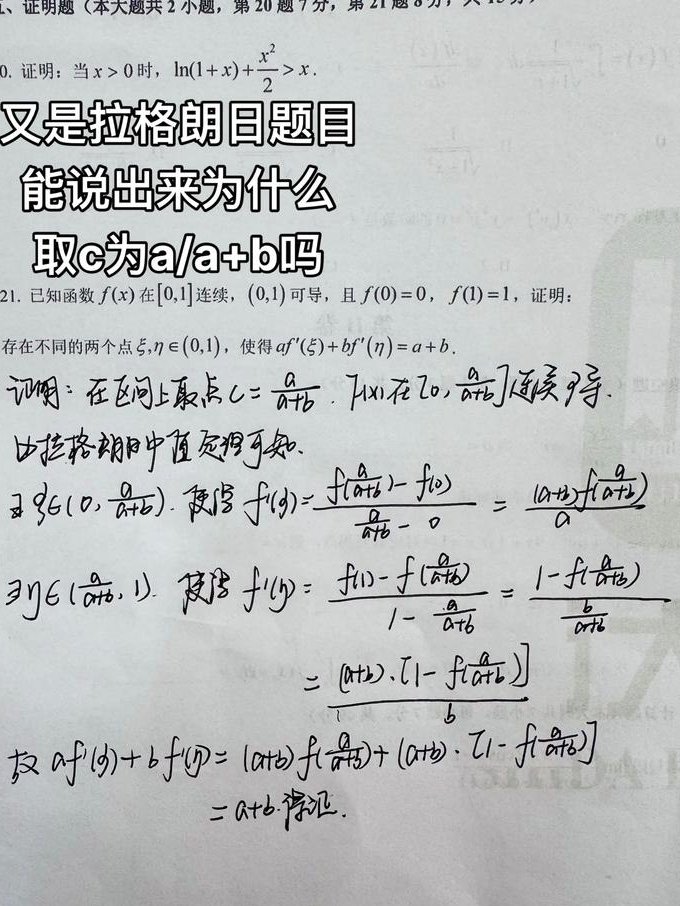 五、证明题（本大题共 2 小题，第 20 题 7 分，第 21 题 8 分，共 15 分）
0. 证明：当 x > 0 时，ln(1+x)+x²/2 > x.
又是拉格朗日题目
能说出来为什么
取c为a/a+b吗
21. 已知函数 f(x) 在[0,1]连续，(0,1)可导，且 f(0)=0，f(1)=1，证明：
存在不同的两个点 ξ,η∈(0,1)，使得af'(ξ)+bf'(η)=a+b.
证明：在区间上取点 c = a/(a+b). f(x)在[0, a/(a+b)]连续可导.
由拉格朗日中值定理可知.
∃ξ∈(0, a/(a+b)). 使得 f'(ξ) = (f(a/(a+b)) - f(0))/(a/(a+b) - 0) = (a+b)f(a/(a+b))/a
∃η∈(a/(a+b), 1). 使得 f'(η) = (f(1) - f(a/(a+b)))/(1 - a/(a+b)) = (1 - f(a/(a+b)))/(b/(a+b))
= (a+b)·[1 - f(a/(a+b))]/b
故 af'(ξ)+bf'(η) = (a+b)f(a/(a+b)) + (a+b)·[1 - f(a/(a+b))]
= a+b.得证.